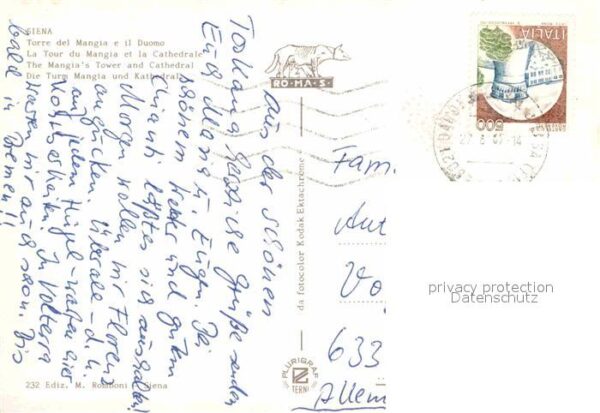 SIENA
Torre del Mangia e il Duomo
La Tour du Mangia et la Cathedrale
The Mangia's Tower and Cathedral
Die Turm Mangia und Kathedrale
RO-MA-S.
ITALIA
500
Aus der schönen
Toskana herzliche Grüße senden
Euch Eugen. Bei
schönem Wetter und gutem
Chianti läßt es sich aushalten!
Morgen wollen wir Florenz
angucken. Überall - d.h.
auf jedem Hügel - warten hier
Kostbarkeiten. In Volterra
waren wir auch schon. Bis
bald in Bremen!!
da fotocolor Kodak Ektachrome
Fam.
Vo
633
Allem
privacy protection
Datenschutz
232 Ediz. M. Romboni - Siena
PLURIGRAF
TERNI